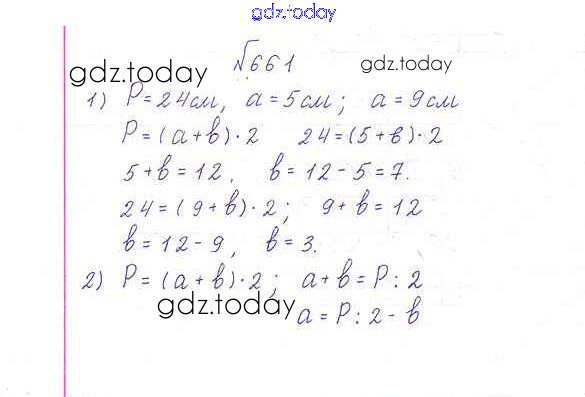 gdz.today
№661
gdz.today gdz.today
1) P=24см, a=5см; a=9см
P=(a+b)·2 24=(5+b)·2
5+b=12, b=12-5=7.
24=(9+b)·2; 9+b=12
b=12-9, b=3.
2) P=(a+b)·2; a+b=P:2
gdz.today
a=P:2-b